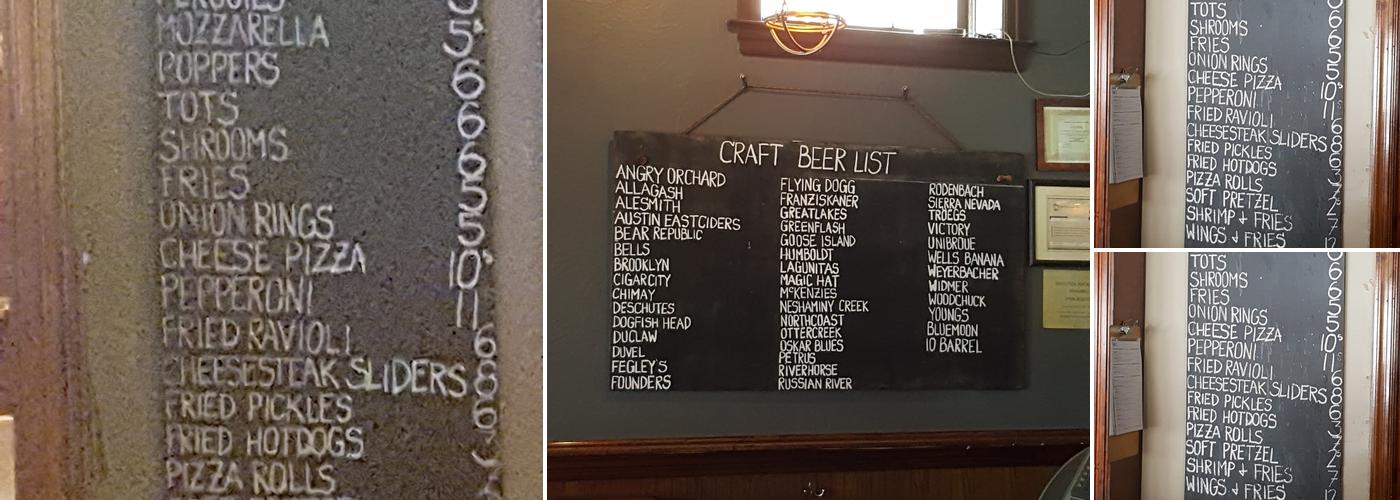 MOZZARELLA 5
POPPERS 6
TOTS 6
SHROOMS 6
FRIES 5
ONION RINGS 5
CHEESE PIZZA 10
PEPPERONI 11
FRIED RAVIOLI 6
CHEESESTEAK SLIDERS 8
FRIED PICKLES 6
FRIED HOTDOGS
PIZZA ROLLS
CRAFT BEER LIST
ANGRY ORCHARD
ALLAGASH
ALESMITH
AUSTIN EASTCIDERS
BEAR REPUBLIC
BELLS
BROOKLYN
CIGARCITY
CHIMAY
DESCHUTES
DOGFISH HEAD
DUCLAW
DUVEL
FEGLEY'S
FOUNDERS
FLYING DOGG
FRANZISKANER
GREATLAKES
GREENFLASH
GOOSE ISLAND
HUMBOLDT
LAGUNITAS
MAGIC HAT
McKENZIES
NESHAMINY CREEK
NORTHCOAST
OTTERCREEK
OSKAR BLUES
PETRUS
RIVERHORSE
RUSSIAN RIVER
RODENBACH
SIERRA NEVADA
TROEGS
VICTORY
UNIBROUE
WELLS BANANA
WEYERBACHER
WIDMER
WOODCHUCK
YOUNGS
BLUEMOON
10 BARREL
TOTS 6
SHROOMS 6
FRIES 5
ONION RINGS 5
CHEESE PIZZA 10
PEPPERONI 11
FRIED RAVIOLI 6
CHEESESTEAK SLIDERS 8
FRIED PICKLES 6
FRIED HOTDOGS
PIZZA ROLLS
SOFT PRETZEL
SHRIMP & FRIES
WINGS & FRIES
TOTS 6
SHROOMS 6
FRIES 5
ONION RINGS 5
CHEESE PIZZA 10
PEPPERONI 11
FRIED RAVIOLI 6
CHEESESTEAK SLIDERS 8
FRIED PICKLES 6
FRIED HOTDOGS
PIZZA ROLLS
SOFT PRETZEL
SHRIMP & FRIES
WINGS & FRIES